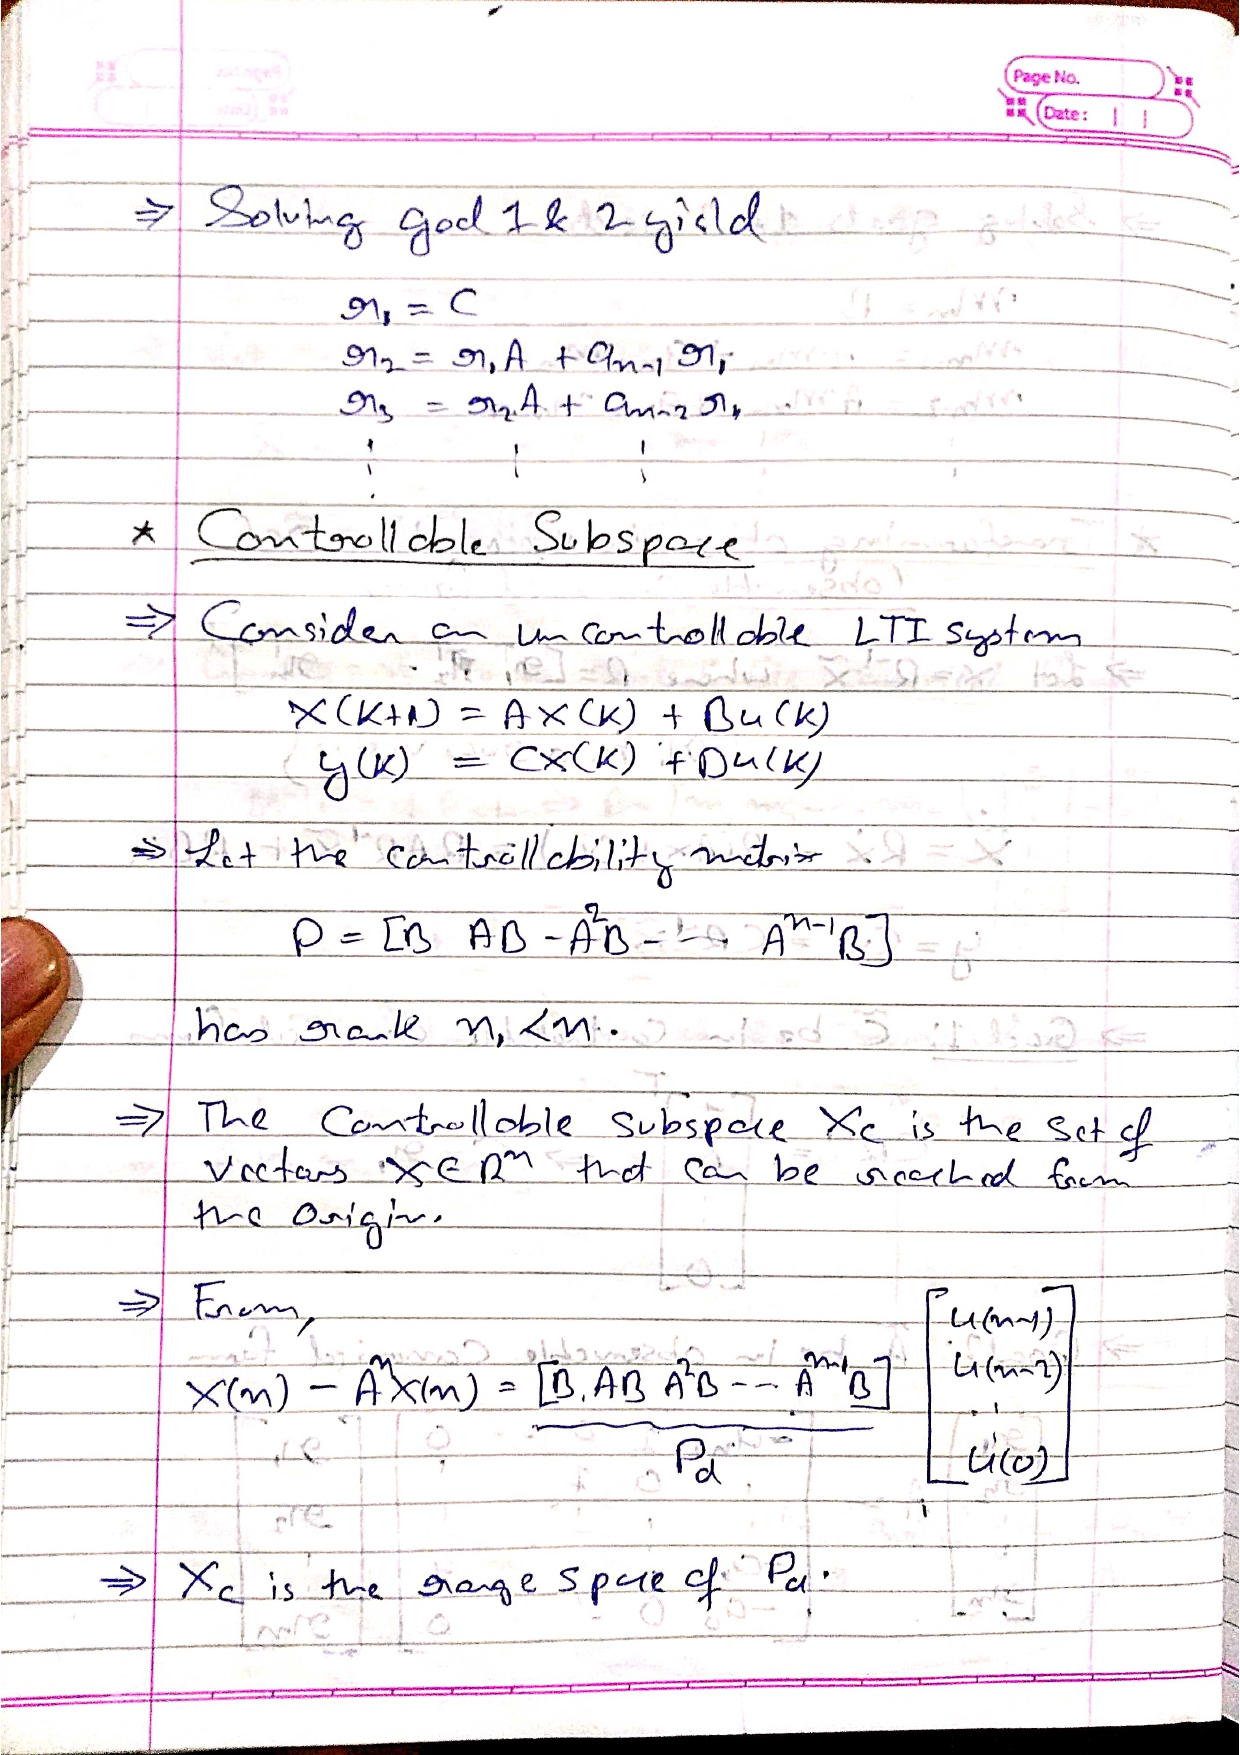 Page No.
Date:
⇒ Solving goal 1 & 2 yield
r₁ = C
r₂ = r₁A + aₙ₋₁ r₁
r₃ = r₂A + aₙ₋₂ r₁
* Controllable Subspace
⇒ Consider an uncontrollable LTI system
X(K+1) = AX(K) + Bu(K)
y(K) = CX(K) + Du(K)
⇒ Let the controllability matrix
P = [B AB - A²B - - - Aⁿ⁻¹B]
has rank n₁ < n.
⇒ The Controllable Subspace Xc is the set of
vectors X ∈ Rⁿ that can be reached from
the Origin.
⇒ From,
X(n) - AⁿX(n) = [B, AB A²B - - Aⁿ⁻¹B] [u(n-1) u(n-2) ⋮ u(0)]
Pd
⇒ Xc is the range space of Pd.